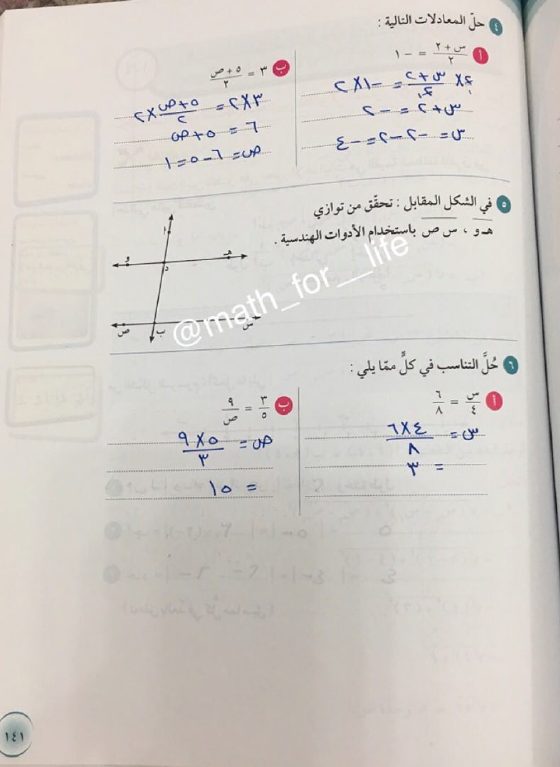 ٤ حلّ المعادلات التالية :
أ س + ٢ / ٢ = − ١
٢ × س + ٢ / ٢ = − ١ × ٢
س + ٢ = − ٢
س = − ٢ − ٢ = − ٤
ب ٣ = ٥ + ص / ٢
٣ × ٢ = ٥ + ص / ٢ × ٢
٦ = ٥ + ص
ص = ٦ − ٥ = ١
٥ في الشكل المقابل : تحقّق من توازي
هـ و ، س ص باستخدام الأدوات الهندسية .
أ
و د هـ
ص ب س
@math_for__life
٦ حُلَّ التناسب في كلٍّ ممّا يلي :
أ س / ٤ = ٦ / ٨
س = ٤ × ٦ / ٨
= ٣
ب ٣ / ٥ = ٩ / ص
ص = ٥ × ٩ / ٣
= ١٥
١٤١